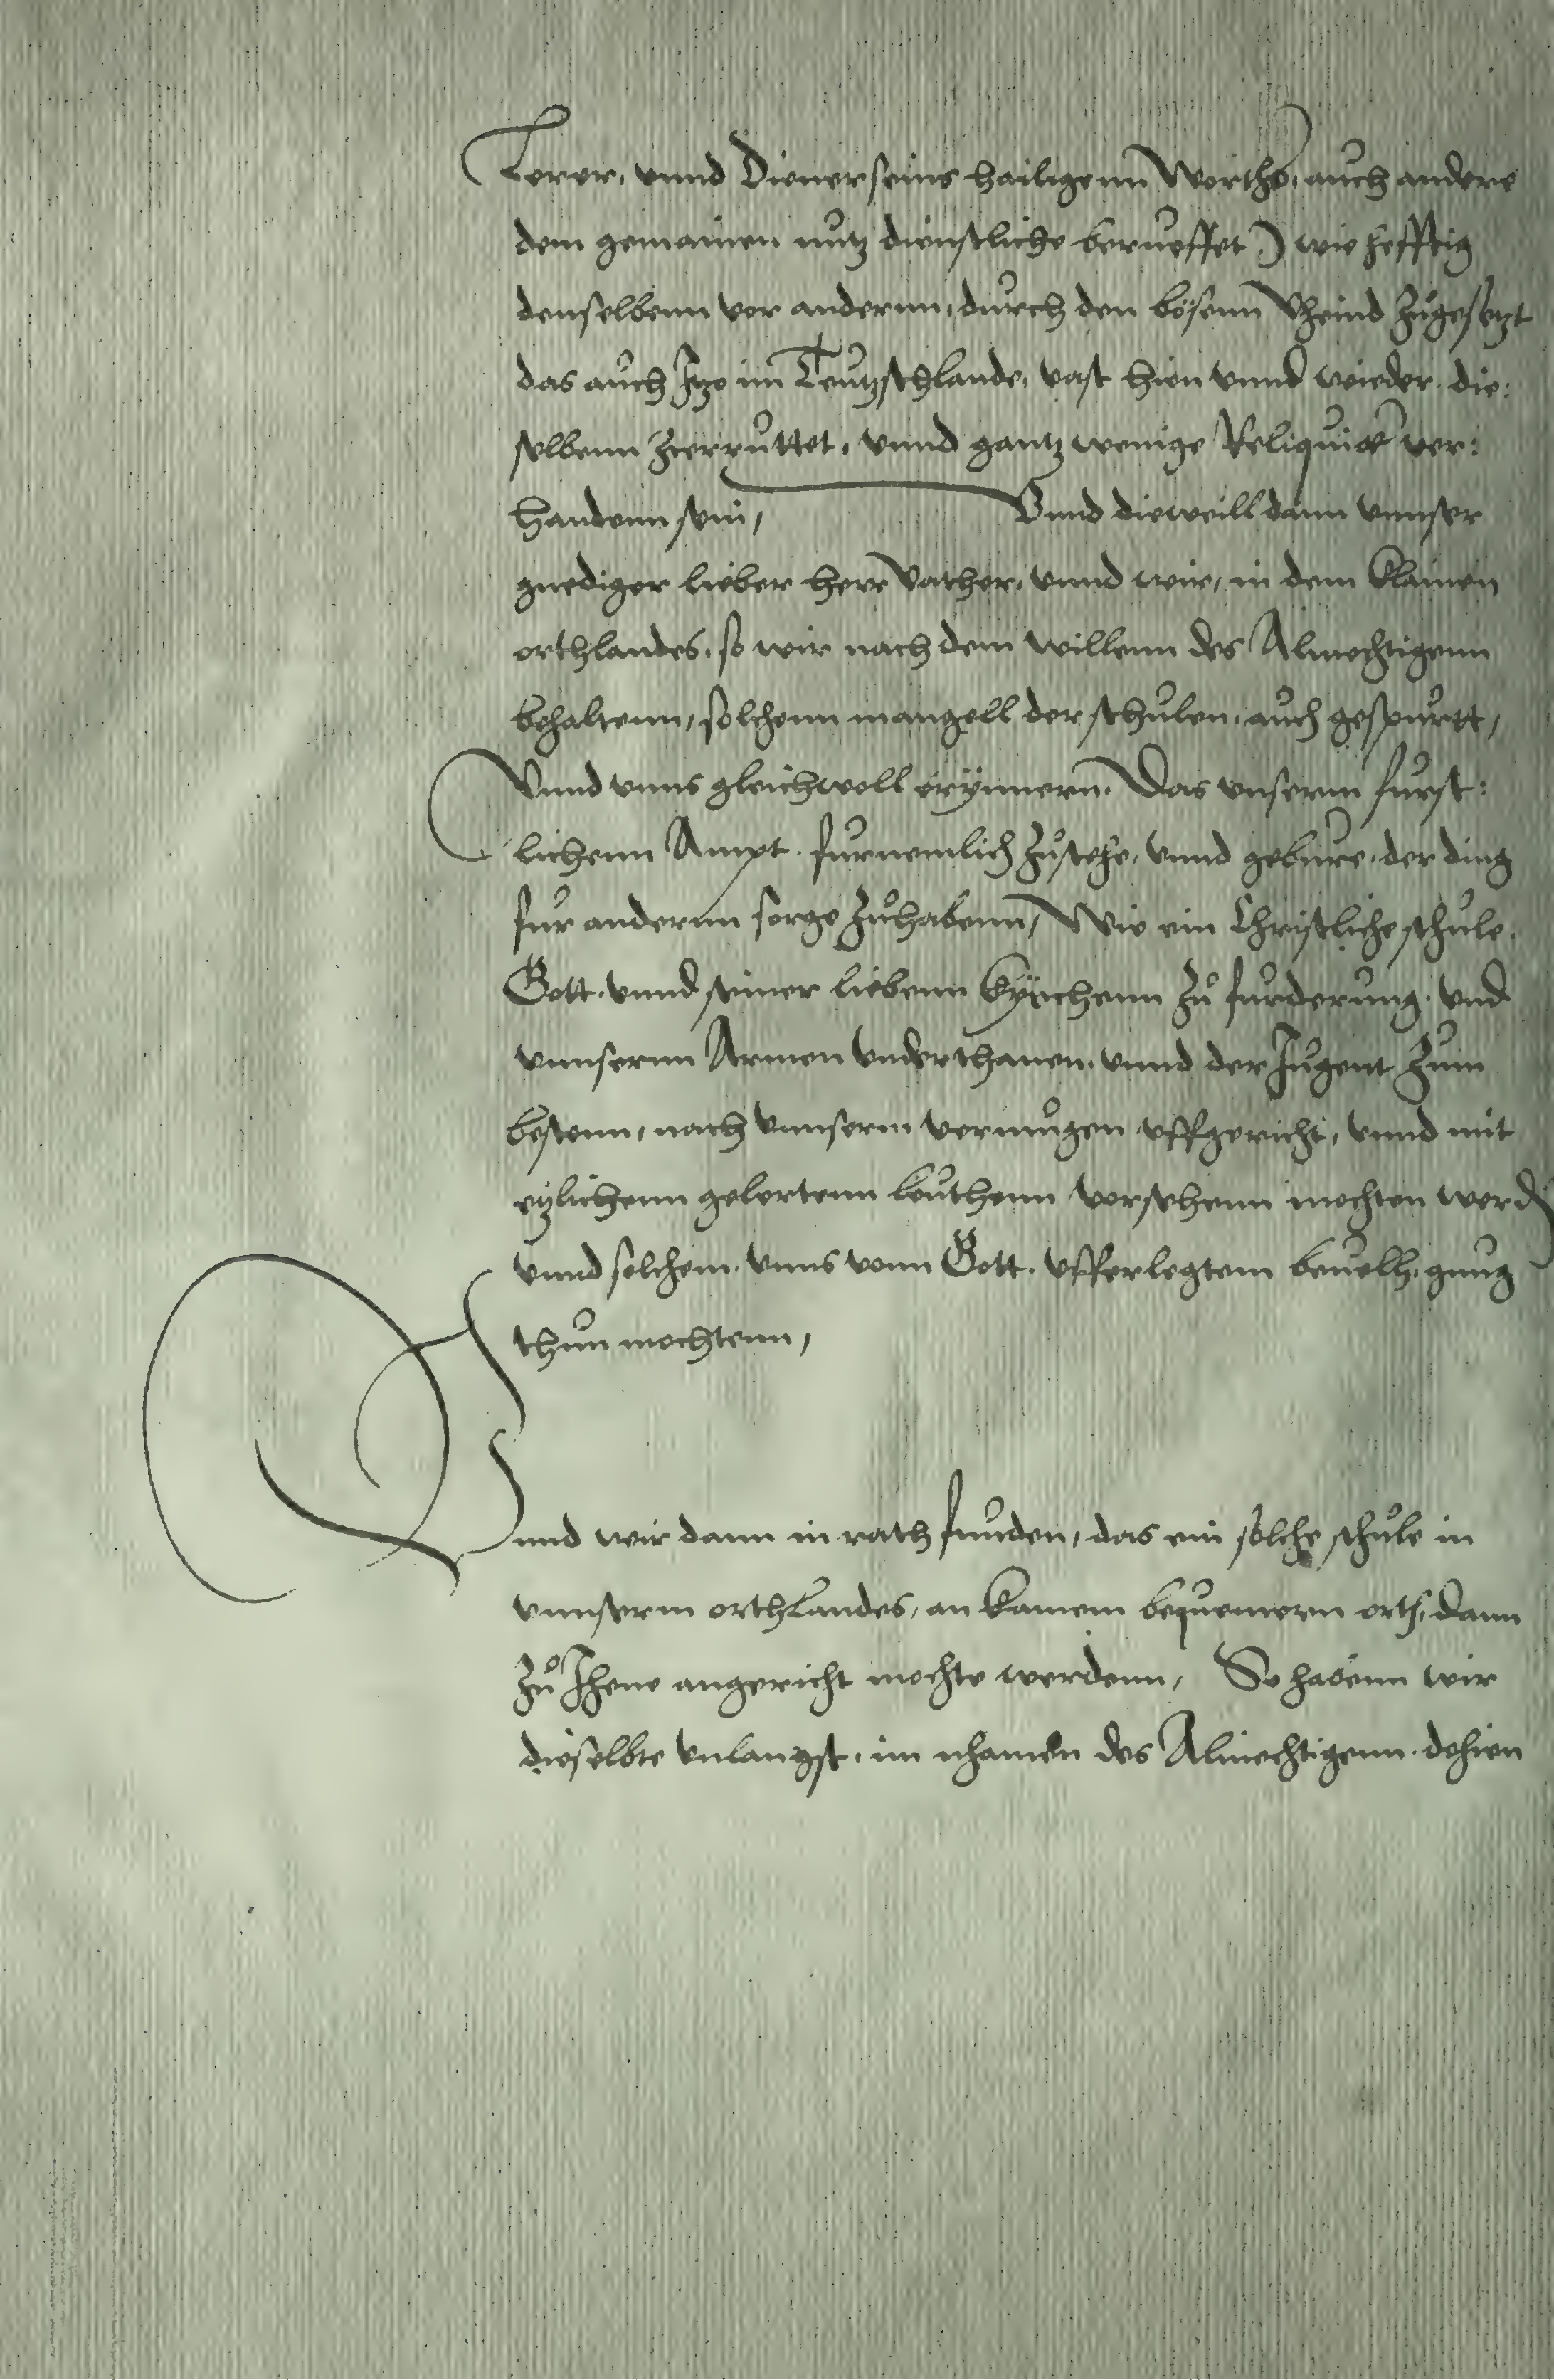 Lerer, vnnd Diener seins hailigenn Worths, auch andere
dem gemainen nutz dienstliche berueffet) wie hefftig
denselbenn vor andernn, durch den bösenn Vheind zugesetzt
das auch Itzo im Teutzschlande, vast hien vnnd wieder, die:
selbenn zerruttet, vnnd gantz wenige Reliquiae ver:
handenn sein, Vnnd dieweill dann vnnser
gnediger lieber herr Vather, vnnd wir, in dem klainen
orthlandes, so wir nach dem willenn des Almechtigenn
behaltenn, solchenn mangell der schulen, auch gespurtt,
Vnnd vnns gleichwoll erÿnnern. Das vnserm furst:
lichenn Ampt. furnemlich zustehe, vnnd gebure, der ding
fur andernn sorge zuhabenn, Wie ein Christliche schule,
Gott. vnnd seiner liebenn kÿrchenn zu furderung. vnd
vnnsernn Armen vnderthanen. vnnd der Jugent zum
bestenn, nach vnnserm vermugen vffgericht, vnnd mit
etzlichenn gelertenn leuthenn versehenn mochten werd
vnnd solchem. vnns vonn Gott. vfferlegtem beuelh, gnug
thun mochtenn,
Vnnd wir dann in rath funden, das ein solche schule in
vnnserm orthlandes, an kainem bequemern orth, dann
zu Jhene angericht mochte werdenn, So habenn wir
dieselbte vnlangst, im nhamen des Almechtigenn. dohien